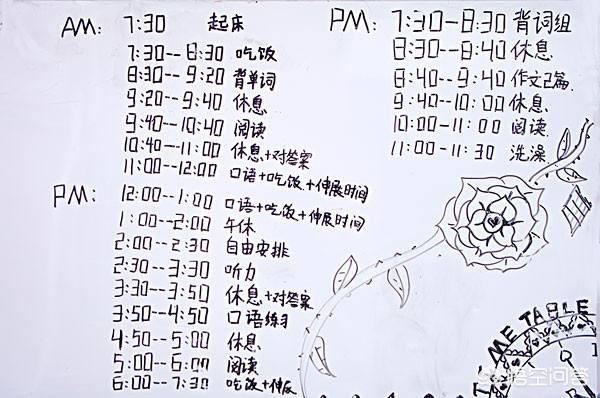 AM: 7:30 起床
7:30--8:30 吃饭
8:30--9:20 背单词
9:20--9:40 休息
9:40--10:40 阅读
10:40--11:00 休息+对答案
11:00--12:00 口语+吃饭+伸展时间
PM: 12:00--1:00 口语+吃饭+伸展时间
1:00--2:00 午休
2:00--2:30 自由安排
2:30--3:30 听力
3:30--3:50 休息+对答案
3:50--4:50 口语练习
4:50--5:00 休息
5:00--6:00 阅读
6:00--7:30 吃饭+伸展
PM: 7:30--8:30 背词组
8:30--8:40 休息
8:40--9:40 作文2篇
9:40--10:00 休息
10:00-11:00 阅读
11:00--11:30 洗澡
TIME TABLE
悟空问答